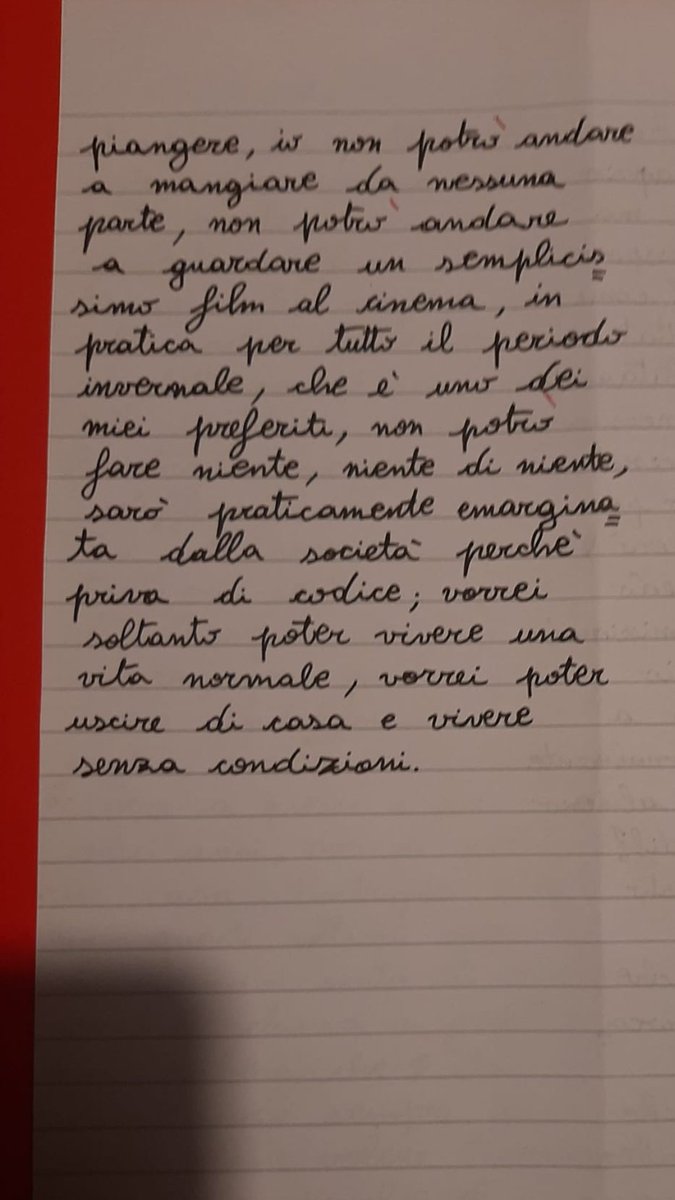 piangere, io non potrò andare
a mangiare da nessuna
parte, non potrò andare
a guardare un semplicis=
simo film al cinema, in
pratica per tutto il periodo
invernale, che è uno dei
miei preferiti, non potrò
fare niente, niente di niente,
sarò praticamente emargina=
ta dalla società perchè
priva di codice; vorrei
soltanto poter vivere una
vita normale, vorrei poter
uscire di casa e vivere
senza condizioni.